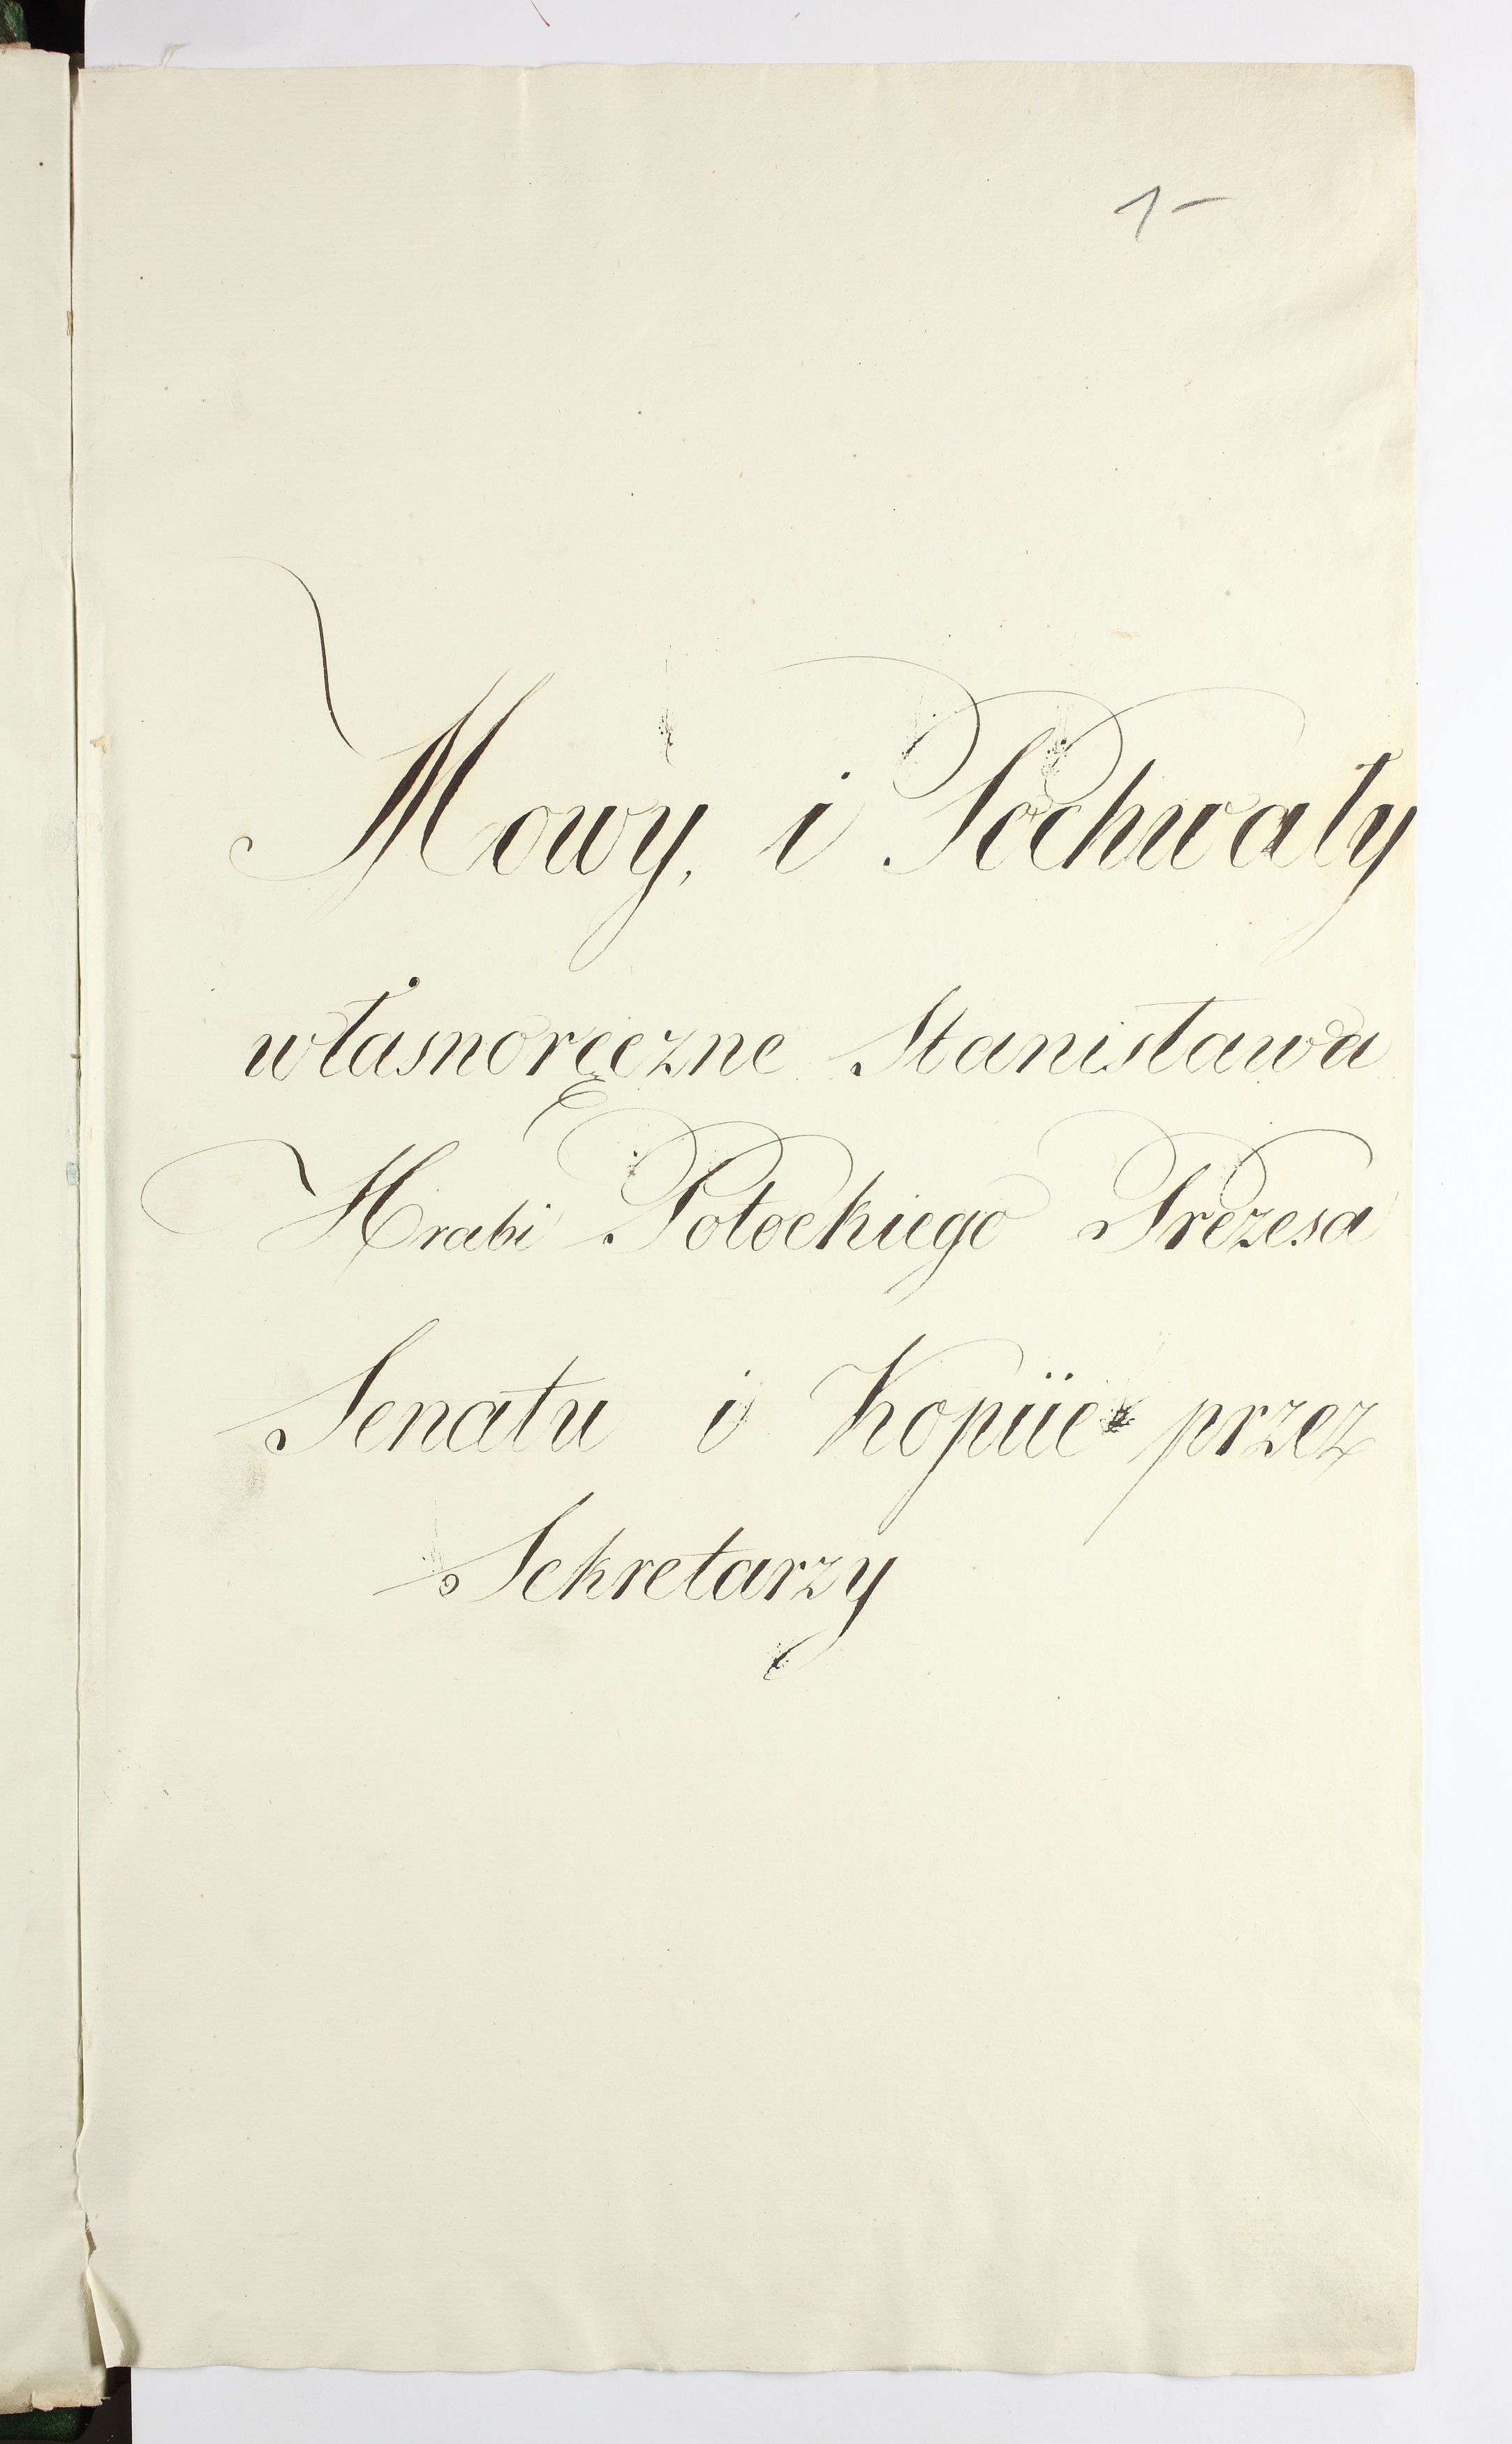 1-
Mowy, i Pochwały
własnoręczne Stanisława
Hrabi Potockiego Prezesa
Senatu i Kopiie przez
Sekretarzy